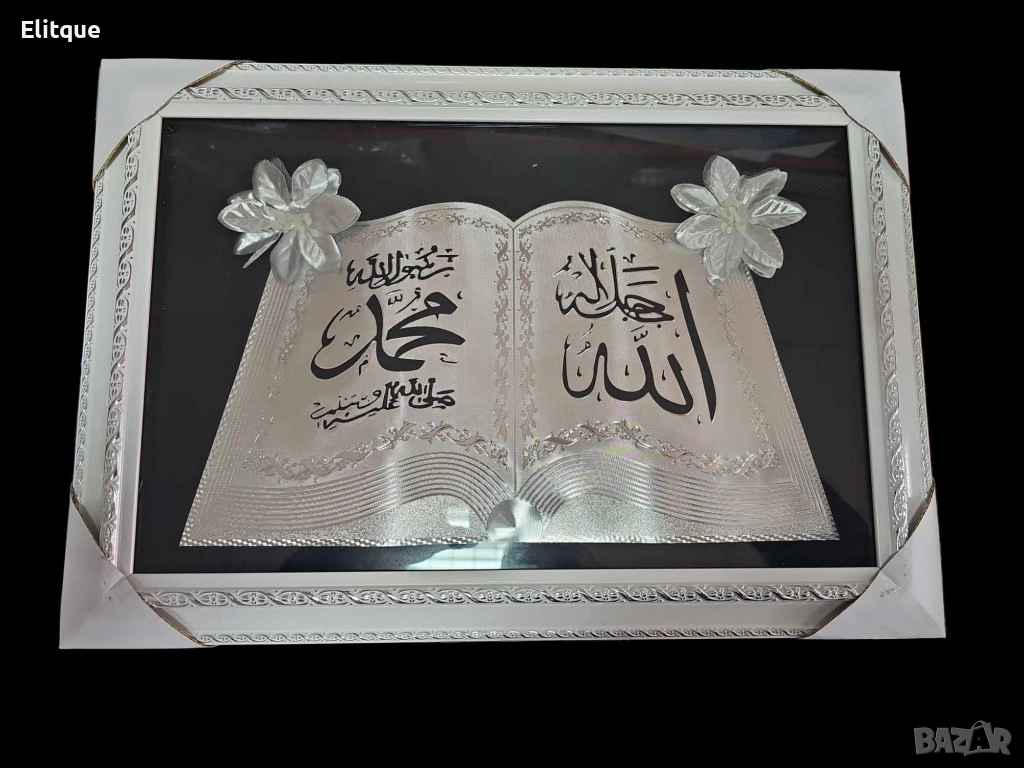 Elitque
الله
جل جلاله
رسول الله
محمد
صلى الله عليه وسلم
BAZAR